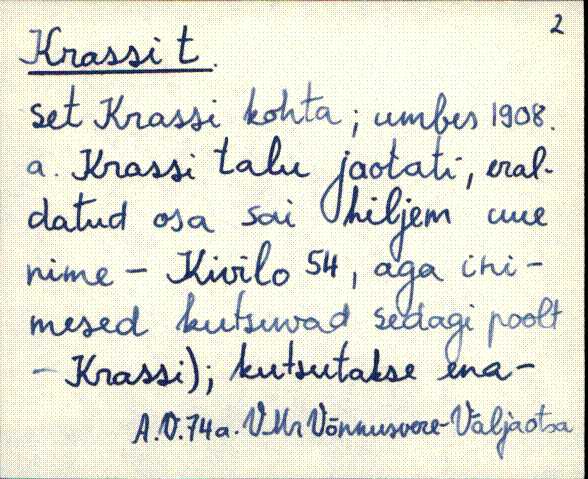 2
Krassi t.
set Krassi kohta; umbes 1908.
a. Krassi talu jaotati, eral-
datud osa sai hiljem uue
nime - Kivilo 54, aga ini-
mesed kutsuvad sedagi poolt
- Krassi); kutsutakse ena-
A.V.74a. VMr Võnnusvere-Väljaotsa